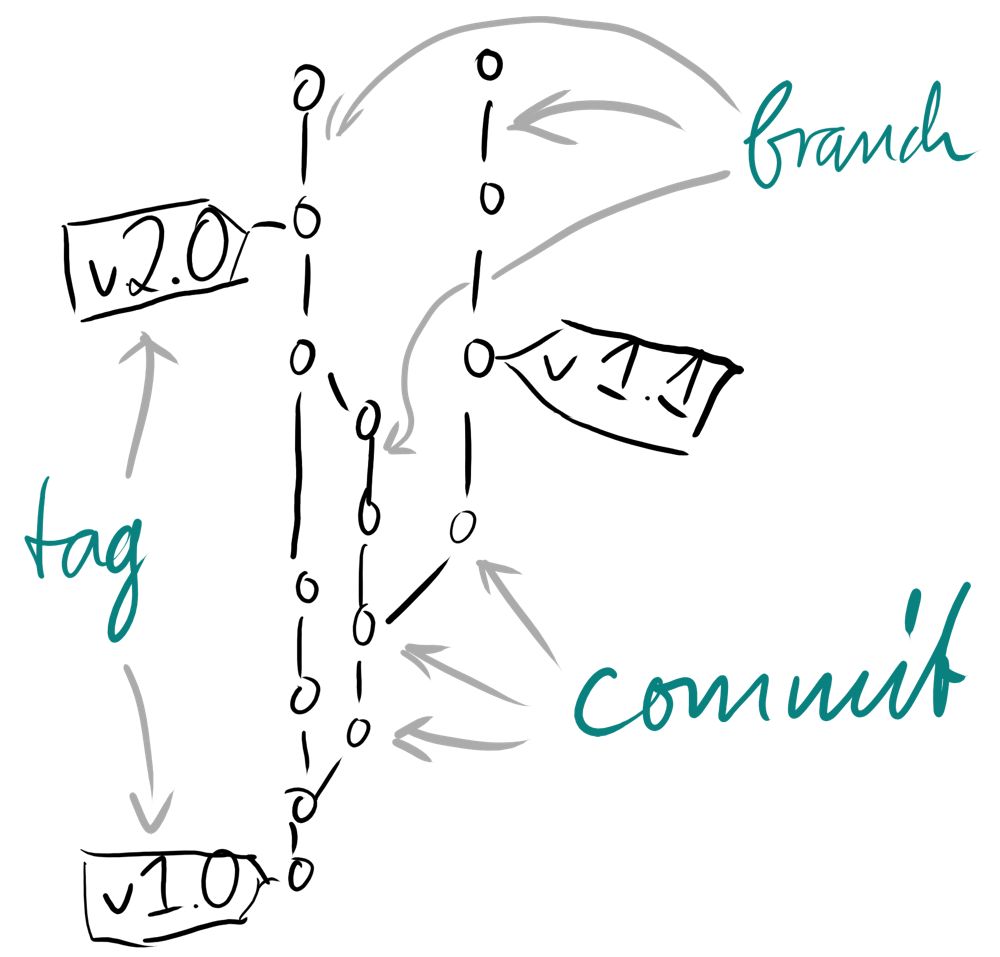 branch
v2.0
v1.1
tag
commit
v1.0